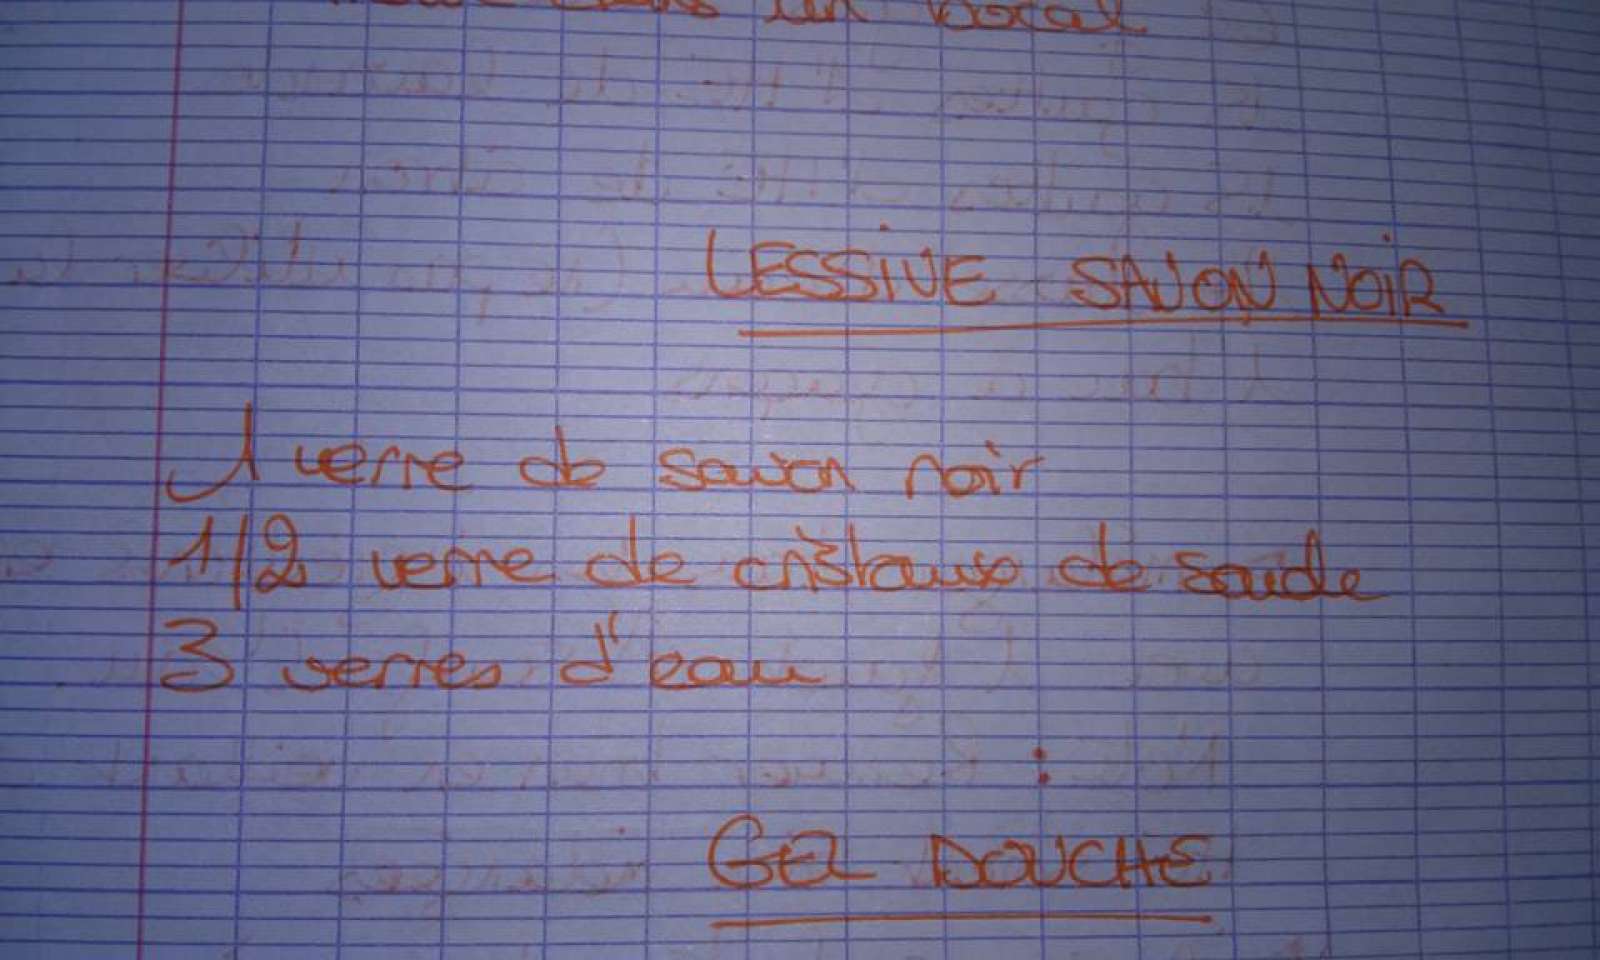 dans un bocal
LESSIVE SAVON NOIR
1 verre de savon noir
1/2 verre de cristaux de soude
3 verres d'eau
:
GEL DOUCHE